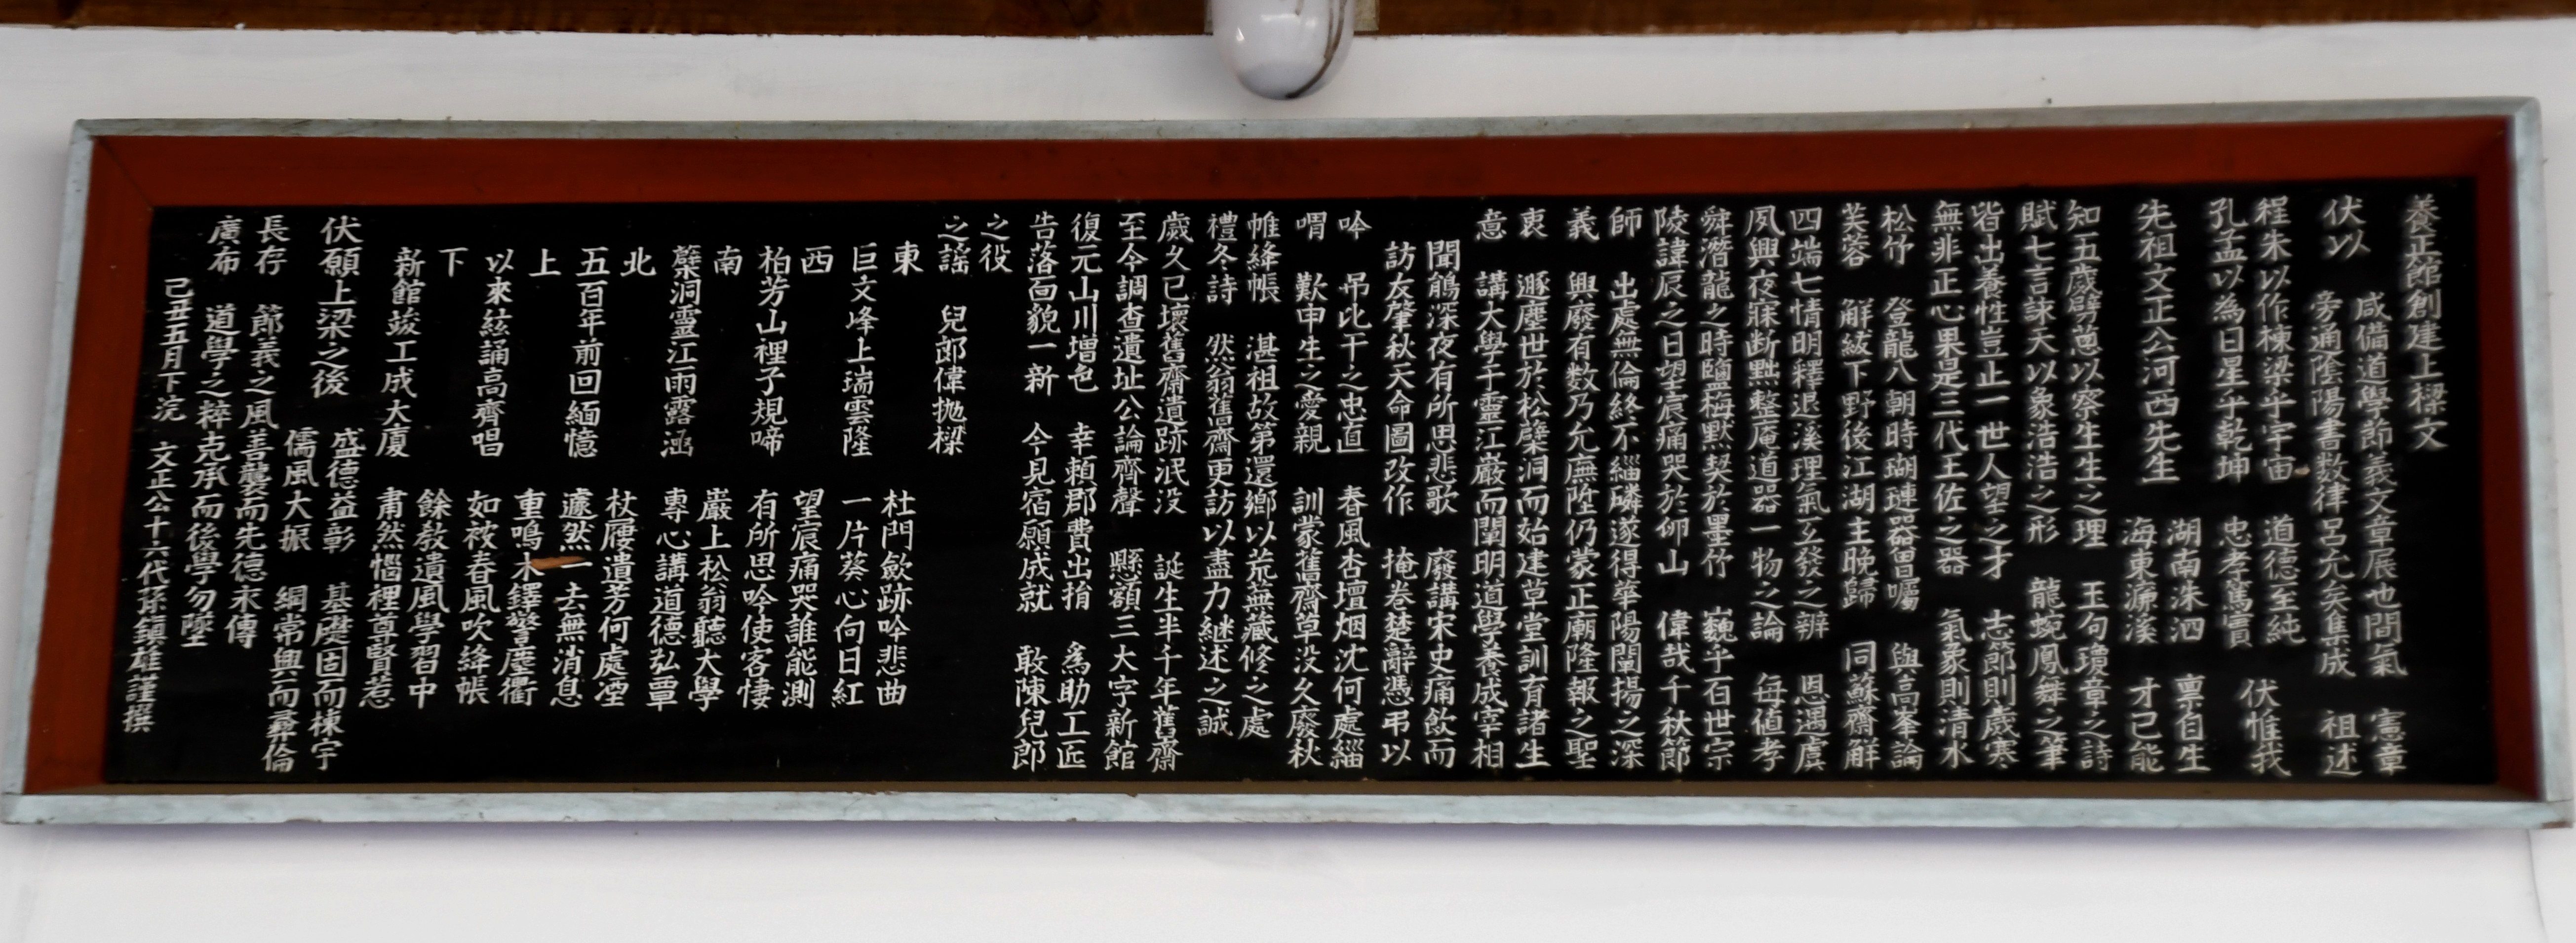 養正館創建上樑文
伏以 咸備道學節義文章展也間氣 憲章
旁通陰陽書数律呂允矣集成 祖述
程朱以作棟梁乎宇宙 道德至純
孔孟以為日星乎乾坤 忠孝篤實 伏惟我
先祖文正公河西先生 湖南洙泗 禀自生
海東濂溪 才已能
知五歲劈蔥以察生生之理 王句瓊章之詩
賦七言諫天以象浩浩之形 龍蜿鳳舞之筆
皆出養性豈止一世人望之才 志節則歲寒
無非正心果是三代王佐之器 氣象則清水
松竹 登龍八朝時瑚璉器曽囑 與高峯論
芙蓉 解紱下野後江湖主晚歸 同蘇齋解
四端七情明釋退溪理氣互發之辨 恩遇虞
夙興夜寐断㸃整庵道器一物之論 每値孝
舜潛龍之時鹽梅默契於墨竹 巍乎百世宗
陵諱辰之日望宸痛哭於卵山 偉哉千秋節
師 出處無倫終不緇磷遂得華陽闡揚之深
義 興廢有数乃允廡陞仍蒙正廟隆報之聖
衷 遯塵世於松蘗洞而始建草堂訓有諸生
意 講大學于靈江巖而闡明道學養成宰相
聞鵑深夜有所思悲歌 廢講宋史痛飲而
訪友肇秋天命圖改作 掩卷楚辭憑弔以
吟 吊比干之忠直 春風杏壇烟沈何處緇
喟 歎申生之愛親 訓蒙舊齋草没久廢秋
帷絳帳 湛祖故第還鄉以荒蕪藏修之處
禮冬詩 然翁舊齋更訪以盡力継述之誠
歲久已壞舊齋遺跡泯没 誕生半千年舊齋
至今調查遺址公論齊聲 懸額三大字新館
復元山川增色 幸賴郡費出捐 爲助工匠
告落面貌一新 今見宿願成就 敢陳兒郎
之役
之謠 兒郎偉抛樑
東 杜門歛跡吟悲曲
巨文峰上瑞雲隆 一片葵心向日紅
西 望宸痛哭誰能測
柏芳山裡子規啼 有所思吟使客悽
南 巖上松翁聽大學
蘗洞靈江雨露涵 專心講道德弘覃
北 杖屨遺芳何處凐
五百年前回緬憶 遽然一去無消息
上 重鳴木鐸警塵衢
以來絃誦高齊唱 如被春風吹絳帳
下 餘敎遺風學習中
新館竣工成大廈 肅然惱裡尊賢惹
伏願上梁之後 盛德益彰 基礎固而棟宇
儒風大振 綱常興而彛倫
長存 節義之風善襲而先德永傳
廣布 道學之粹克承而後學勿墜
己丑五月下浣 文正公十六代孫鎮雄謹撰